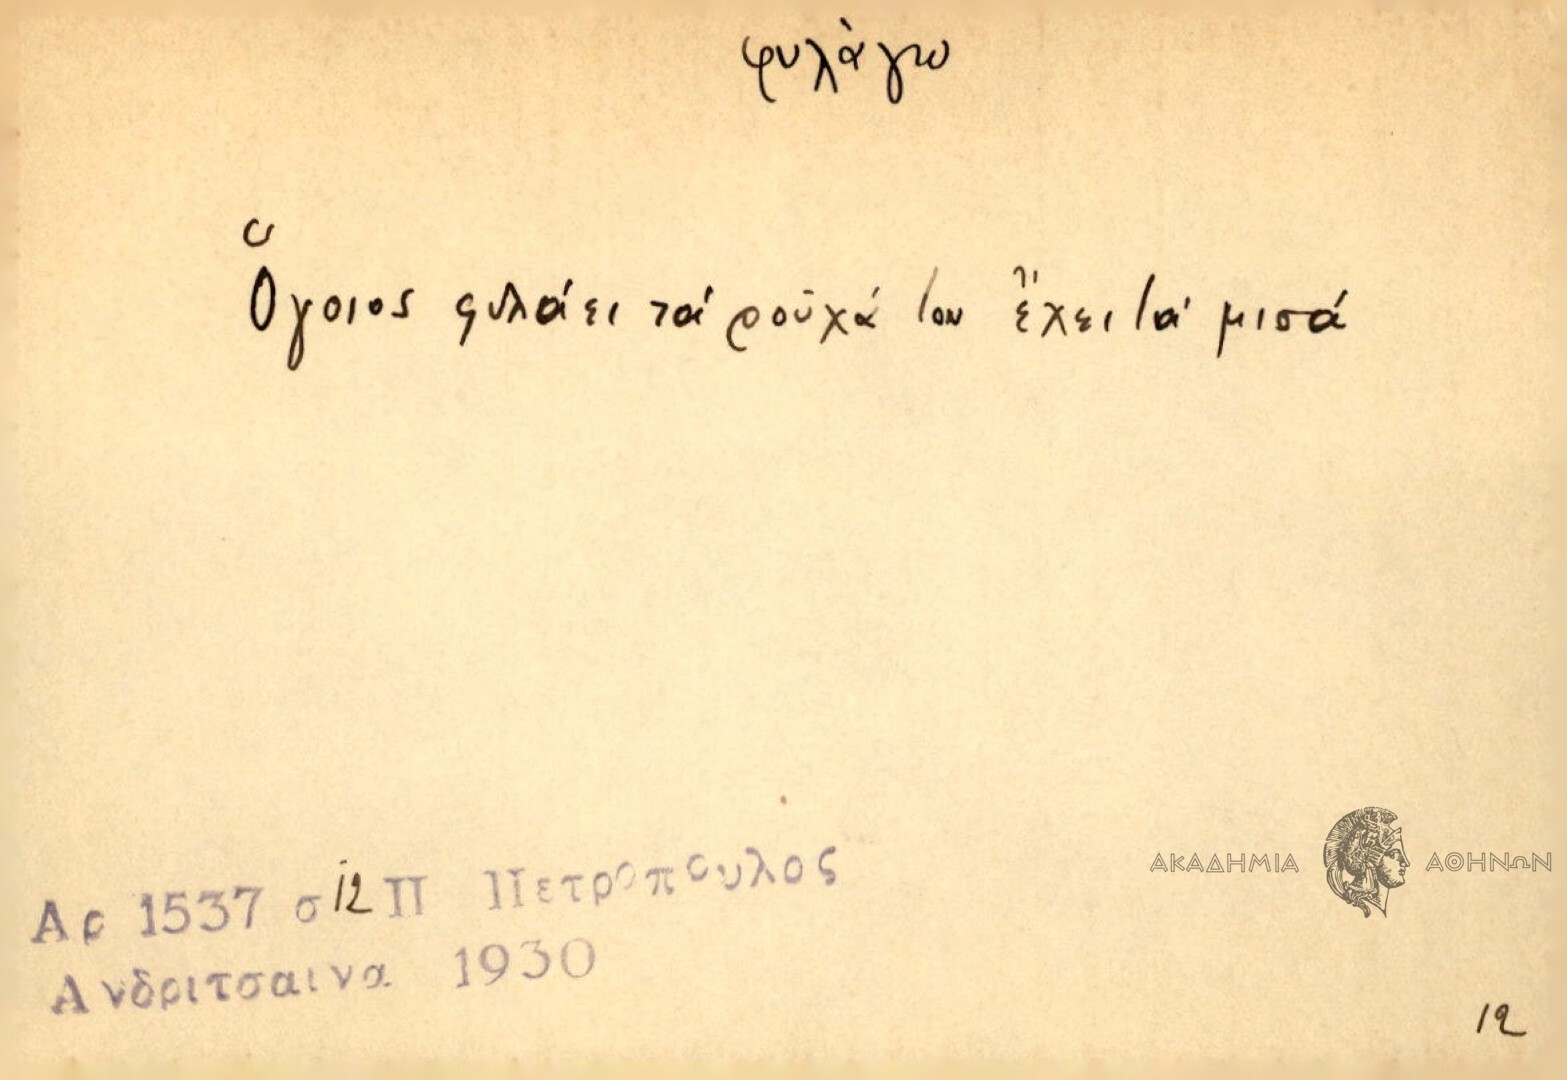 φυλάγω
Ὅγοιος φυλάει τά ροῦχά του ἔχει τά μισά
Αρ 1537 σ 12 Π Πετροπουλος
Ανδριτσαινα 1930
ΑΚΑΔΗΜΙΑ ΑΘΗΝΩΝ
12